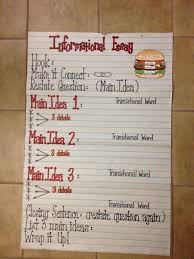 Informational Essay
Hook:
Make it Connect:
Restate Question: (Main Idea)
Main Idea 1: Transitional Word
3 details
Main Idea 2: Transitional Word
3 details
Main Idea 3: Transitional Word
3 details
Closing Sentence: (restate question again)
List 3 main ideas:
Wrap it Up!